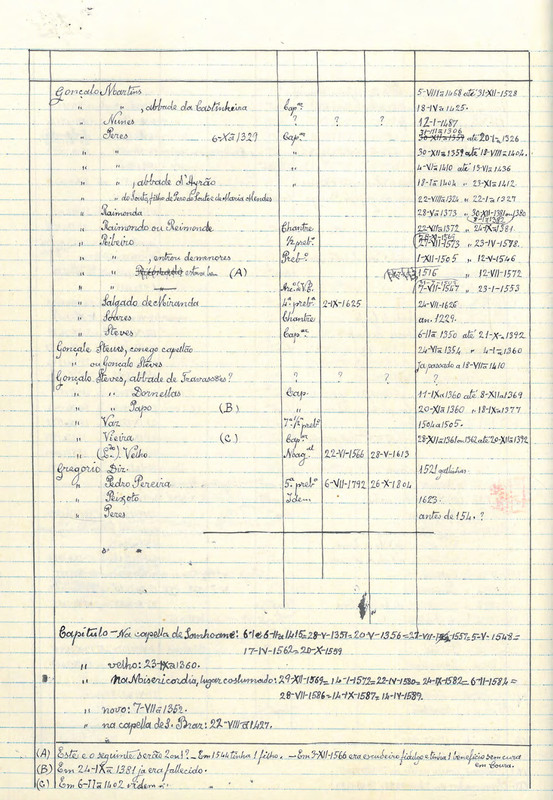 Gonçalo Martins 5-VIII=1468 até 31-XII-1528
" " , abbade da Castinheira Cap.am 18-IV=1425.
" Nunes ? ? ? 12-I-1487
" Peres 6-X=1329 Cap.am até 20-I=1326
" " " 30-XII=1359 até 18-VIII=1404.
" " " 4-VI=1410 até 13-VI=1436
" " , abbade d'Ayrão " 18-I=1404 " 23-XI=1412
" " 22-VIII=1324 " 22-I=1327
" Raimonda " 28-V=1373
" Raimondo ou Reimonde Chantre 22-VII=1372 " 24-IX=1381
" Ribeiro ½ preb.º 27-VII-1573 " 23-IV-1578.
" " , entrou de menores Preb.º 1-XII-1505 " 12-V-1546
" " (A) 1516 " 12-VII-1572
" 7-VII-1547 " 23-I-1553
" Salgado de Miranda 4ª preb.ª 2-IX-1625 24-VII-1626
" Soares Chantre an. 1229.
" Steves Cap.am 6-II= 1350 até 21-X=1392
Gonçalo Steves, conego capellão 24-VI=1354 " 4-I=1360
" ou Gonçalo Steves Ja passado a 18-VII=1410
Gonçalo Steves, abbade de Travassores? ? ? ? ?
" " Dornellas Cap. 11-IX=1360 até 8-XII=1369
" " Papo (B) " 20-XI=1360 " 18-IX=1377
" Vaz 7ª ½ preb.ª 1504=1505.
" Vieira (C) Cap.am 28-XII=1361=1362 até 20-XII=1392
" Velho Mag.al 22-VI-1566 28-V-1613
Gregorio Dir. 1521
" Pedro Pereira 5ª preb.ª 6-VII-1792 26-X-1804
" Peixoto Idem 1623
" Peres antes de 154. ?
Capitulo - Na capella de : 28-V-1351= 20-V-1356= 5-V-1548=
17-IV-1562=20-X-1569
" velho: 23-IX=1360.
" Na Misericordia, lugar costumado: 29-XII-1569= 14-I-1572= 22-IV-1580= 24-IX-1582= 6-II-1584=
28-VII-1586= 14-IX-1587= 14-IV-1589.
" novo: 7-VII=1352.
" na capella de S. Braz: 22-VIII=1427.
(A) Este e o seguinte serão 2 ou 1? - Em 1544 tinha 1 filho. - Em 3-XII-1566 era escudeiro fidalgo e tinha 1 beneficio sem cura
em Coura.
(B) Em 24-IX=1381 ja era fallecido.
(C) Em 6-II=1402 idem